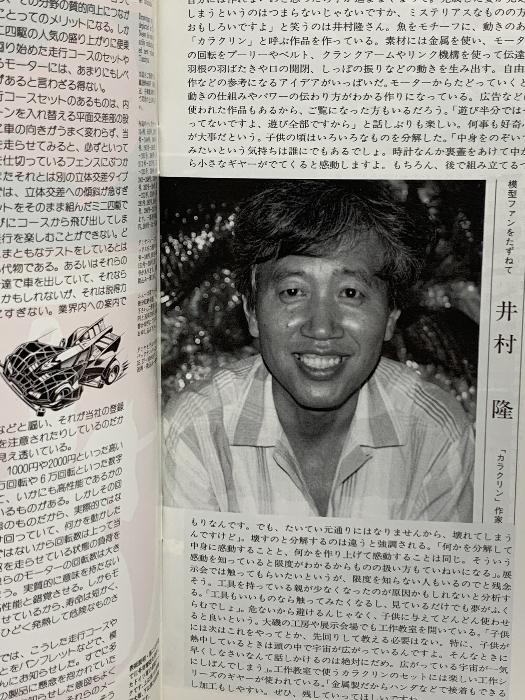 しまうというのはつまらないじゃないですか、ミステリアスなものの方
おもしろいですよ」と笑うのは井村隆さん。魚をモチーフに、動きのあ
「カラクリン」と呼ぶ作品を作っている。素材には金属を使い、モータ
の回転をプーリーやベルト、クランクアームやリンク機構を使って伝達
羽根の羽ばたきや口の開閉、しっぽの振りなどの動きを生み出す。自由
作などの参考になるアイデアがいっぱいだ。モーターからたどっていくと
動きの仕組みやパワーの伝わり方がわかる作りになっている。広告など
使われた作品もあるから、ご覧になった方もいるだろう。「遊び半分では
ってないですよ、遊び全部ですから」と話しぶりも楽しい。何事も好奇
が大事だという。子供の頃はいろいろなものを分解した。「中身をのぞいて
みたいという気持ちは誰にでもあるでしょ。時計なんか裏蓋をあけて中か
ら小さなギヤーがでてくると感動しますよ。もちろん、後で組み立てる
模型ファンをたずねて
井村 隆
「カラクリン」作家
もりなんです。でも、たいてい元通りにはなりませんから、壊れてしまう
んですけど」。壊すのと分解するのは違うと強調される。「何かを分解して
中身に感動することと、何かを作り上げて感動することは同じ。そういう
感動を知っていると限度がわかるからものの扱い方もていねいになる」。展
示会では触ってもらいたいというが、限度を知らない人もいるので残念
そう。工具を持っている親が少なくなったのが原因かもしれないと分析す
る。「工具もいいものなら触ってみたくなるし、見ているだけでも夢がふく
らむでしょ」。危ないから避けるんじゃなく、子供に与えてどんどん使わせ
ると良いという。大磯の工房や展示会場でも工作教室を開いている。「子供
には次はこれをやってとか、先回りして教える必要はない。特に、子供が
熱中しているときは頭の中で宇宙が広がっているんですよ。そんなときに
早くしなさいなんて話しかけるのは絶対にだめ。広がっている宇宙が一気
にしぼんでしまう」。工作教室で使うカラクリンのセットには楽しい工作シ
リーズのギヤーが使われている。「金属製だからハンダなどで改造もできる
し加工もしやすい。ぜひ、残していってほしい
で、この分野の質的向上につなが
ことってのメリットになる。しか
ミニ四駆の人気の盛り上がりに便乗
回り始めた走行コースのセットや
るモーターには、あまりにもレベ
があると言わざる得ない。
行コースセットのあるものは、内
ーンを入れ替える平面交差部の設
と車の向きがうまく変わらず、当
を走らせてみると、必ずといって
を仕切っているフェンスにぶつか
またそれとは別の立体交差タイプ
では、立体交差への傾斜が急すぎ
ットをそのまま組んだミニ四駆で
びにコースから飛び出してしま
走行を楽しむことができない。ど
まともなテストをしているとは
代物である。あるいはそれらの
達で車を出していて、それなら
かもしれないが、それは説得力
とすぎない。業界内への案内で
などと謳い、それが当社の登録
を注意されたりしているのだか
見え透いている。
1000円や2000円といった高い
万回転や6万回転といった数字
て、いかにも高性能であるかの
いるものがある。しかしその回
のものだから、実際的ではな
け回っていて、何かを動かした
ではないから回転数は上って当
を走らせている状態の負荷を
らのモーターの回転数は大き
う。実質的に意味を持たない
性能と錯覚させる。しかもモ
させているから、寿命は短かく、
ひどく発熱して危険なものさ
では、こうした走行コースや
とをパンフレットなどで、模
んにお知らせした。すでにあ
の製品に懸念を抱かれていた